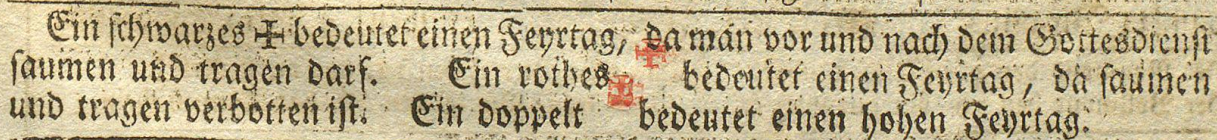 Ein schwarzes ✠ bedeutet einen Feyrtag, da man vor und nach dem Gottesdienst
saumen und tragen darf. Ein rothes ✠ bedeutet einen Feyrtag, da saumen
und tragen verbotten ist. Ein doppelt bedeutet einen hohen Feyrtag.